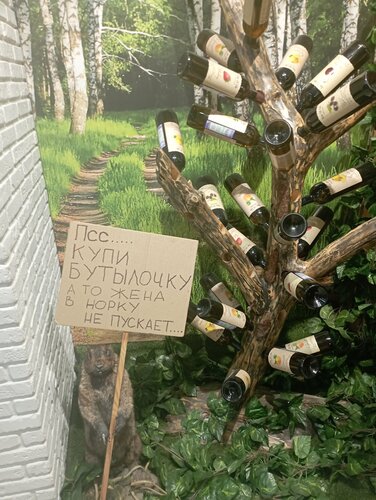 Псс.....
КУПИ
БУТЫЛОЧКУ
А ТО ЖЕНА
В НОРКУ
НЕ ПУСКАЕТ....